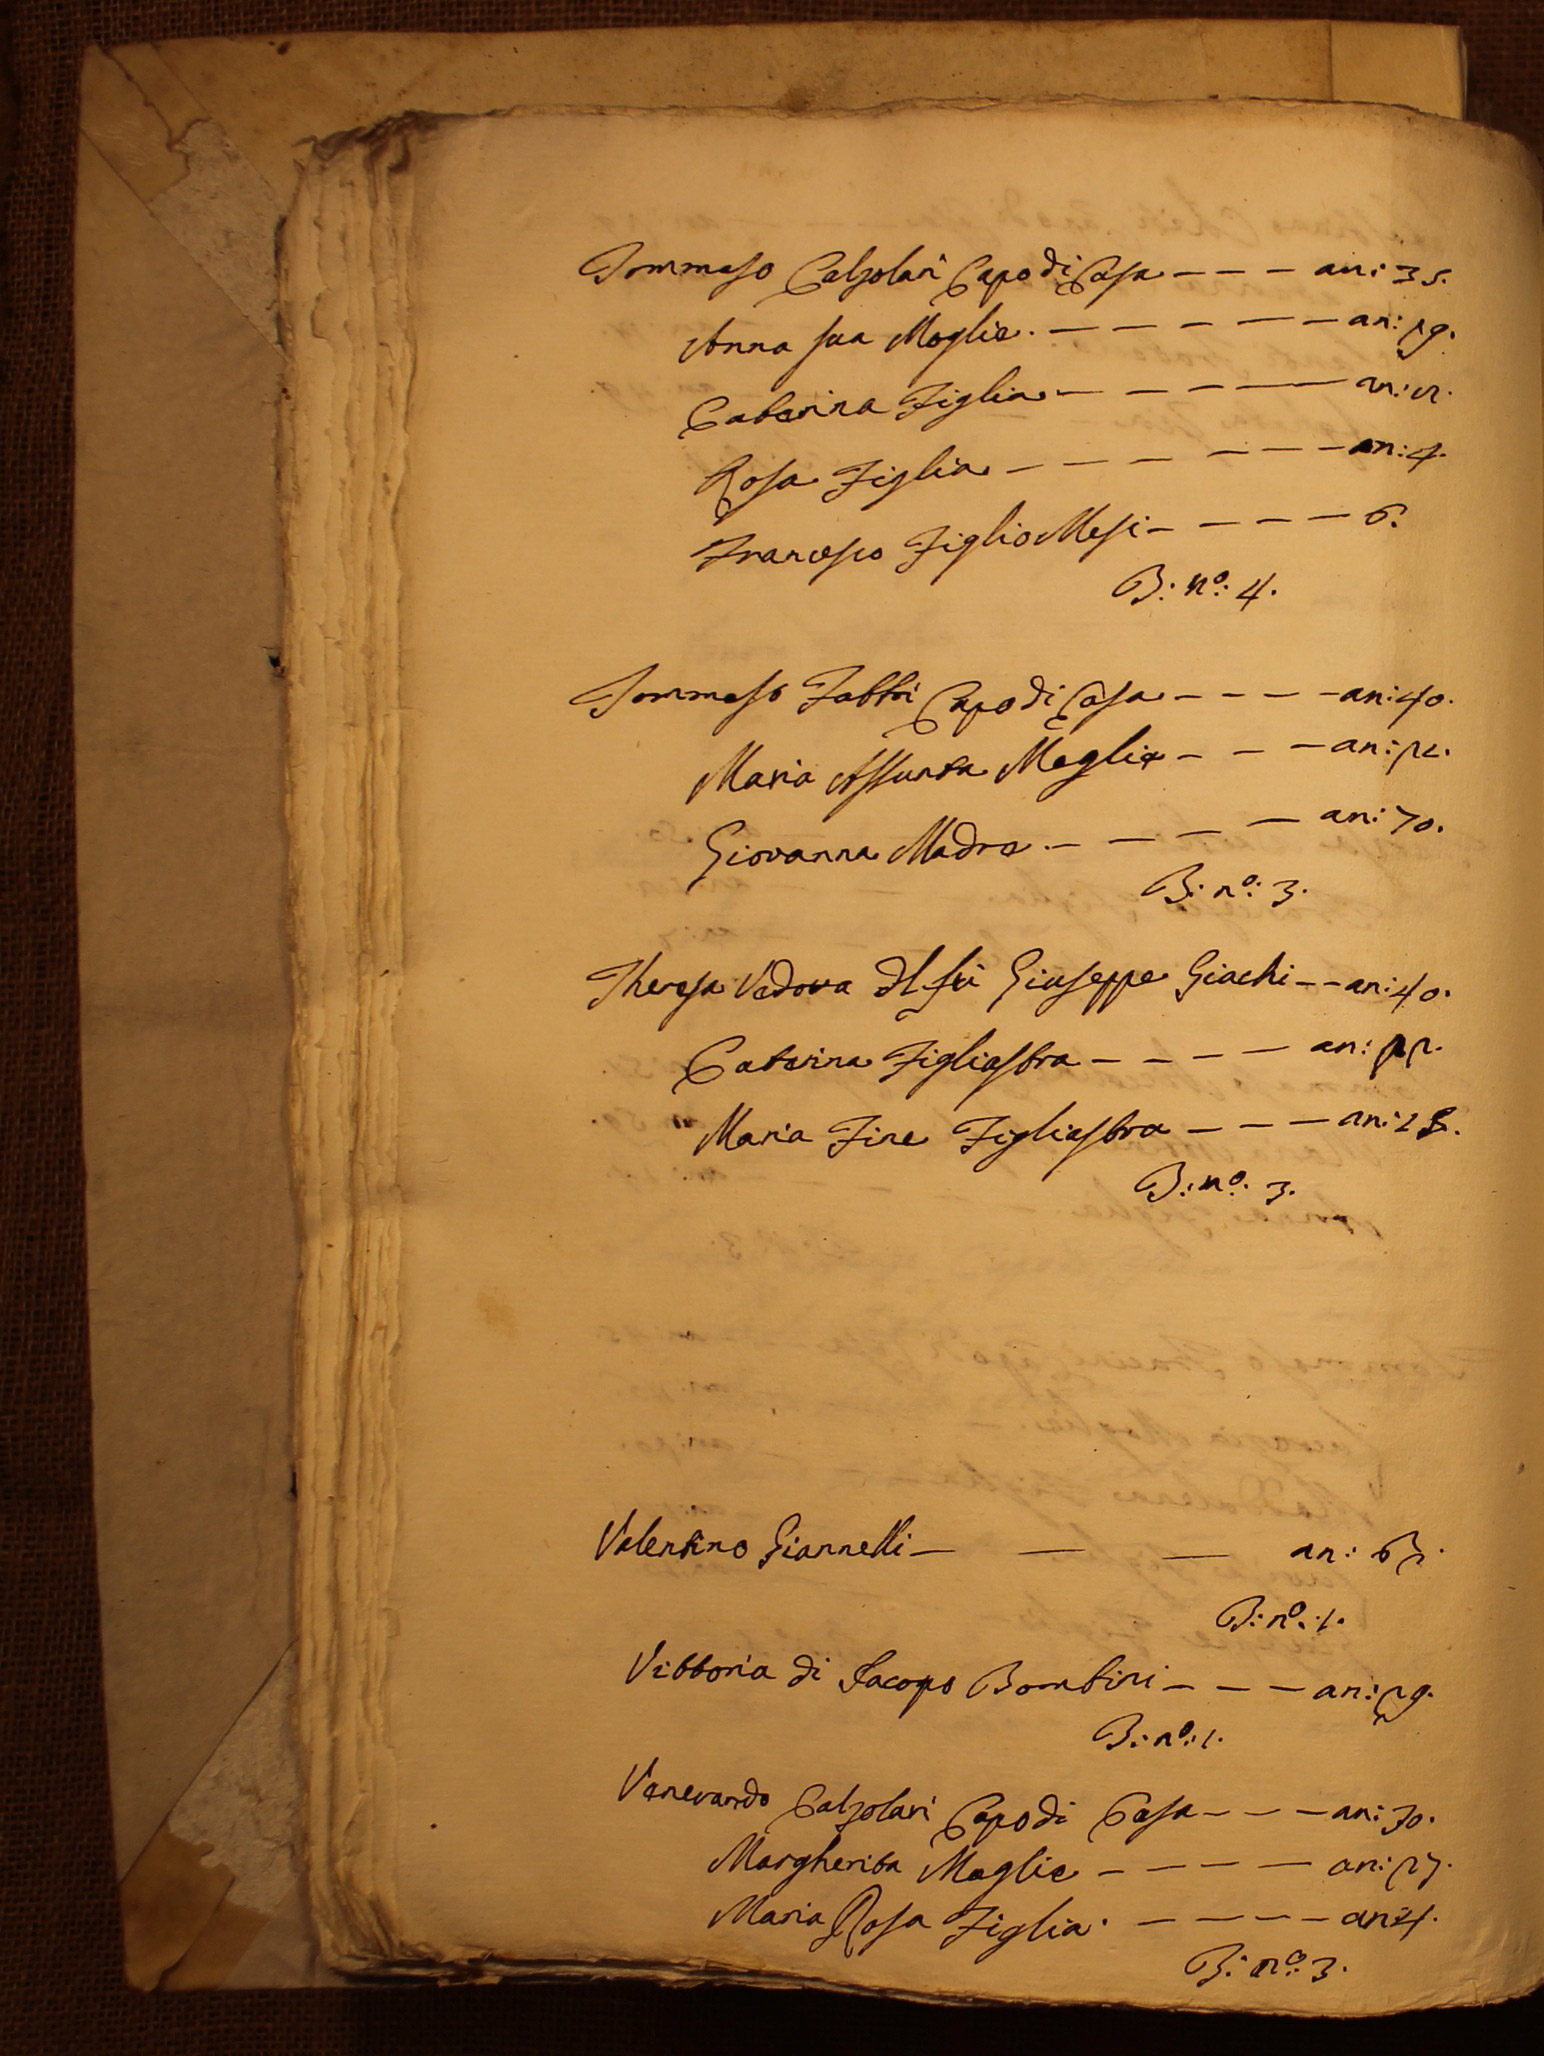 Tommaso Calzolari Capo di Casa — — — an: 35.
Anna sua Moglie. — — — — — — an: 29.
Caterina Figlia — — — — — an:
Rosa Figlia — — — — — — an: 4.
Francesco Figlio Mesi — — — — 6.
B: nº: 4.
Tommaso Fabbri Capo di Casa — — — — an: 40.
Maria Assunta Moglie — — — an:
Giovanna Madre. — — — — an: 70.
B: nº: 3.
Theresa Vedova dl fù Giuseppe Giachi — — an: 40.
Caterina Figliastra — — — — an: 22.
Maria Fine Figliastra — — — an: 18.
B: nº: 3.
Valentino Giannelli — — — an: 62.
B: nº: 1.
Vittoria di Jacopo Bombini — — — an: 29.
B: nº: 1.
Venerando Calzolari Capo di Casa — — — an: 30.
Margherita Moglie — — — — an: 27.
Maria Rosa Figlia. — — — — an: 4.
B: nº: 3.